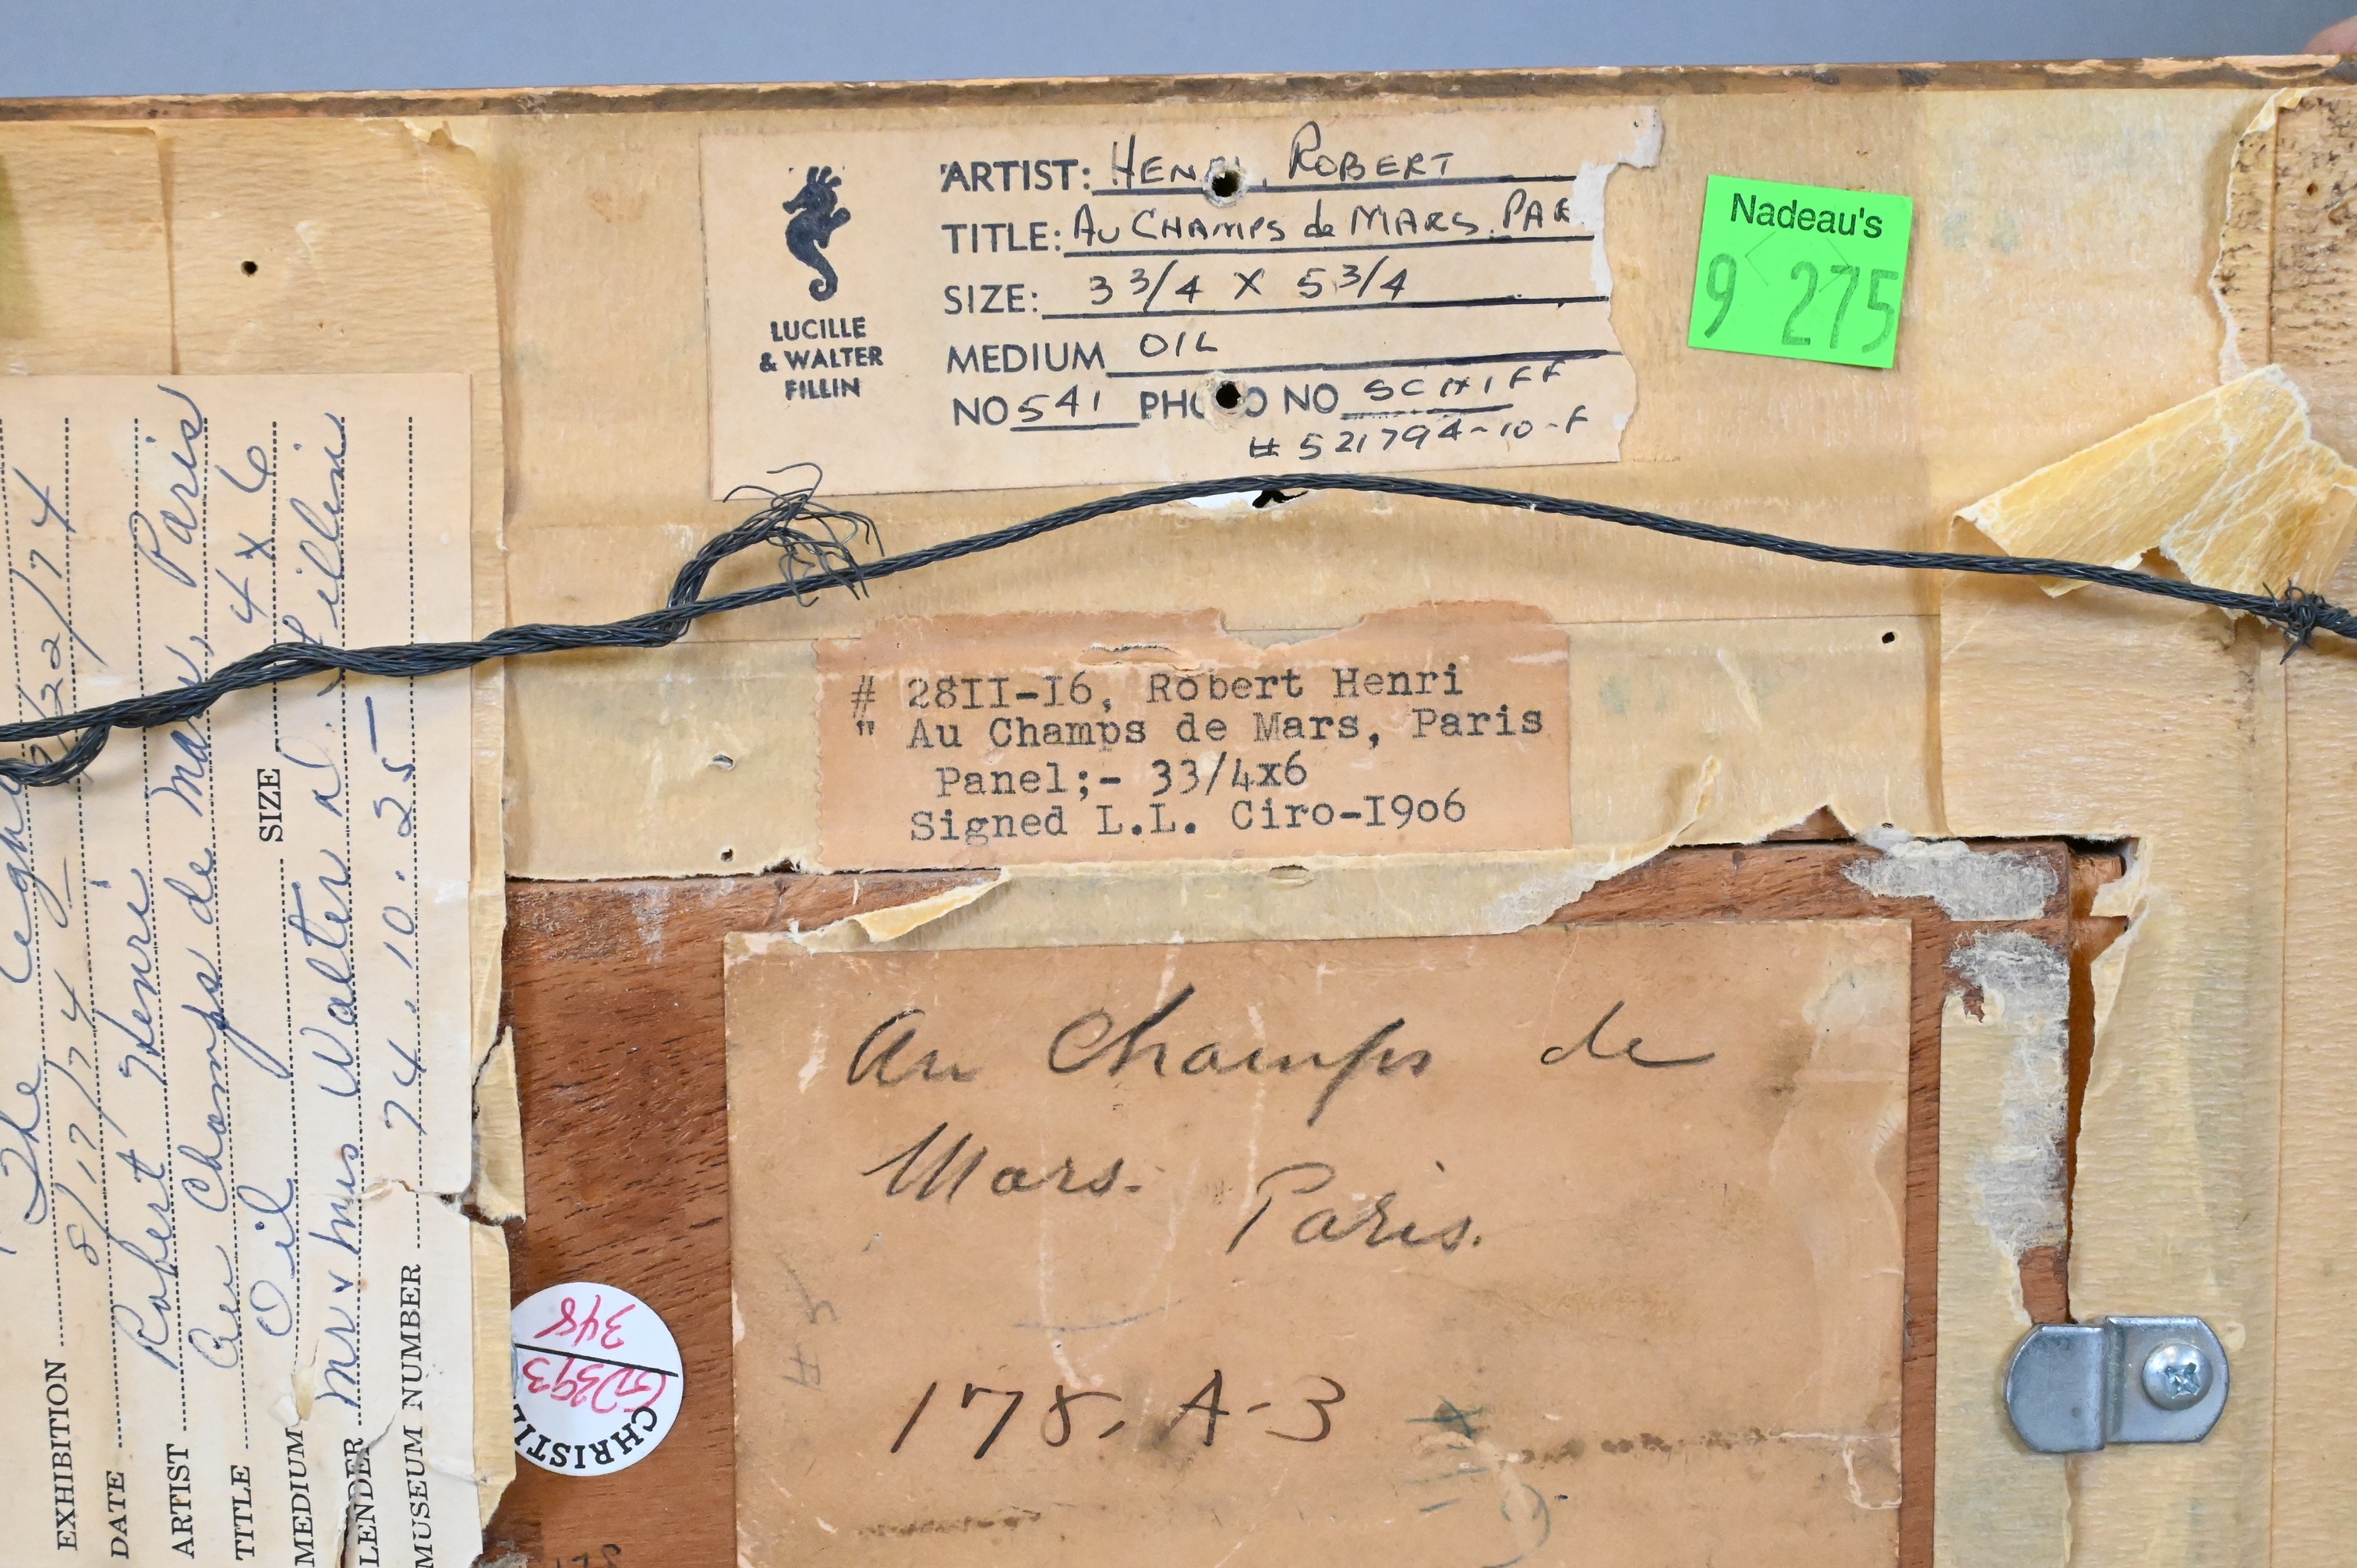 ARTIST: HENRI, ROBERT
TITLE: AU CHAMPS de MARS. PAR
SIZE: 3 3/4 X 5 3/4
MEDIUM OIL
NO 541 PHOTO NO SCHIFF
# 521794-10-F
LUCILLE
& WALTER
FILLIN
Nadeau's
9 275
# 28II-I6, Robert Henri
" Au Champs de Mars, Paris
Panel;- 33/4x6
Signed L.L. Ciro-I906
Au Champs de
Mars. Paris.
178. A-3
# 5
EXHIBITION The Eight
DATE 8/17/74 22/74
ARTIST Robert Henri
TITLE Au Champs de Mars, Paris
MEDIUM Oil SIZE 4 x 6
LENDER Mr & Mrs Walter Fillin
MUSEUM NUMBER 74.10.25
348
CHRISTI